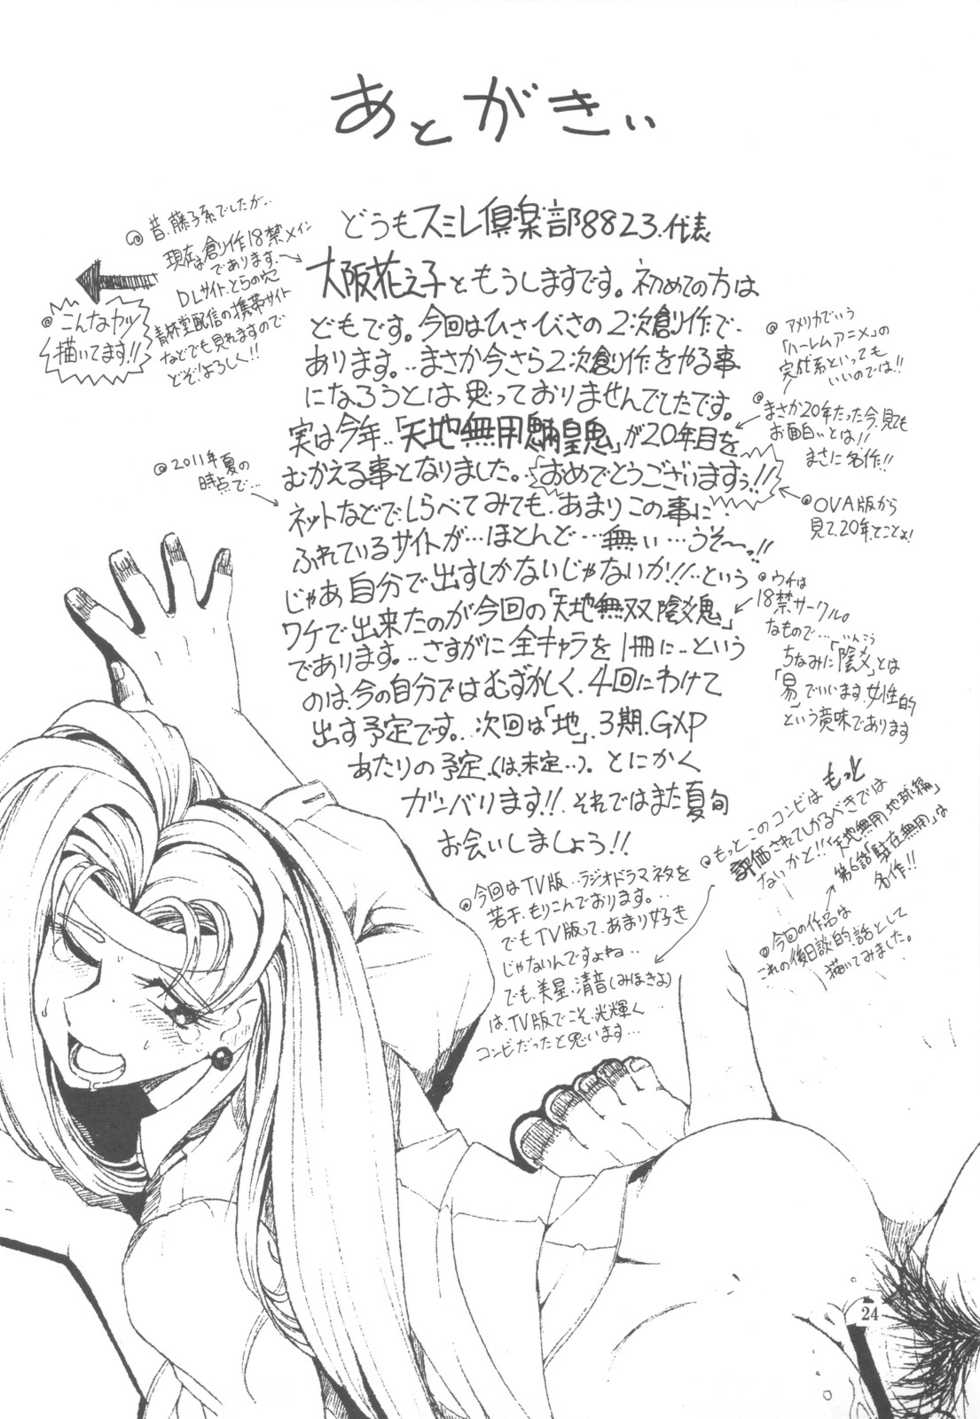 あとがきぃ
どうもスミレ倶楽部8823.代表
大阪花之子ともうしますです。初めての方は
どもです。今回はひさびさの2次創作で
あります。..まさか今さら2次創作をやる事
になろうとは思っておりませんでしたです。
実は今年..「天地無用魎皇鬼」が20年目を
むかえる事となりました。「おめでとうございますぅ!!」
ネットなどでしらべてみても、あまりこの事に
ふれているサイトが…ほとんど…無い…うそ〜っ!!
じゃあ自分で出すしかないじゃないか!!..という
ワケで出来たのが今回の「天地無双陰爻鬼」
であります。..さすがに全キャラを1冊に..という
のは今の自分ではむずかしく、4回にわけて
出す予定です。次回は「地」.3期.GXP
あたりの予定.(は.未定..)。とにかく
ガンバリます!!.それではまた夏旬
お会いしましょう!!
◎昔.藤子系でしたが..
現在は創作18禁メイン
であります.
DLサイト.とらの穴
青林堂配信の携帯サイト
などでも見れますので
どぞ!よろしく!!
◎こんなカンジ
描いてます!!
◎2011年夏の
時点で…
◎アメリカでいう
「ハーレムアニメ」の
完成系といっても
いいのでは!!
◎まさか20年たった今.見ても
お面白いとは!!
まさに名作!!
◎OVA版から
見て.20年てことよ!
◎ウチは
18禁サークル。
なもので…いんこう
ちなみに「陰爻」とは
「易」でいいます.女性的
という意味であります
◎もっとこのコンビはもっと
評価されてしかるべきでは
ないかと!!「天地無用地球編」
第6話「駐在無用」は
名作!!
◎今回の作品は
これの後日談的話として
描いてみました。
◎今回はTV版..ラジオドラマネタを
若干.もりこんでおります。…
でもTV版って.あまり好き
じゃないんですよね…
でも.美星.清音(みほきよ)
は.TV版でこそ.光輝く
コンビだったと思います…
24